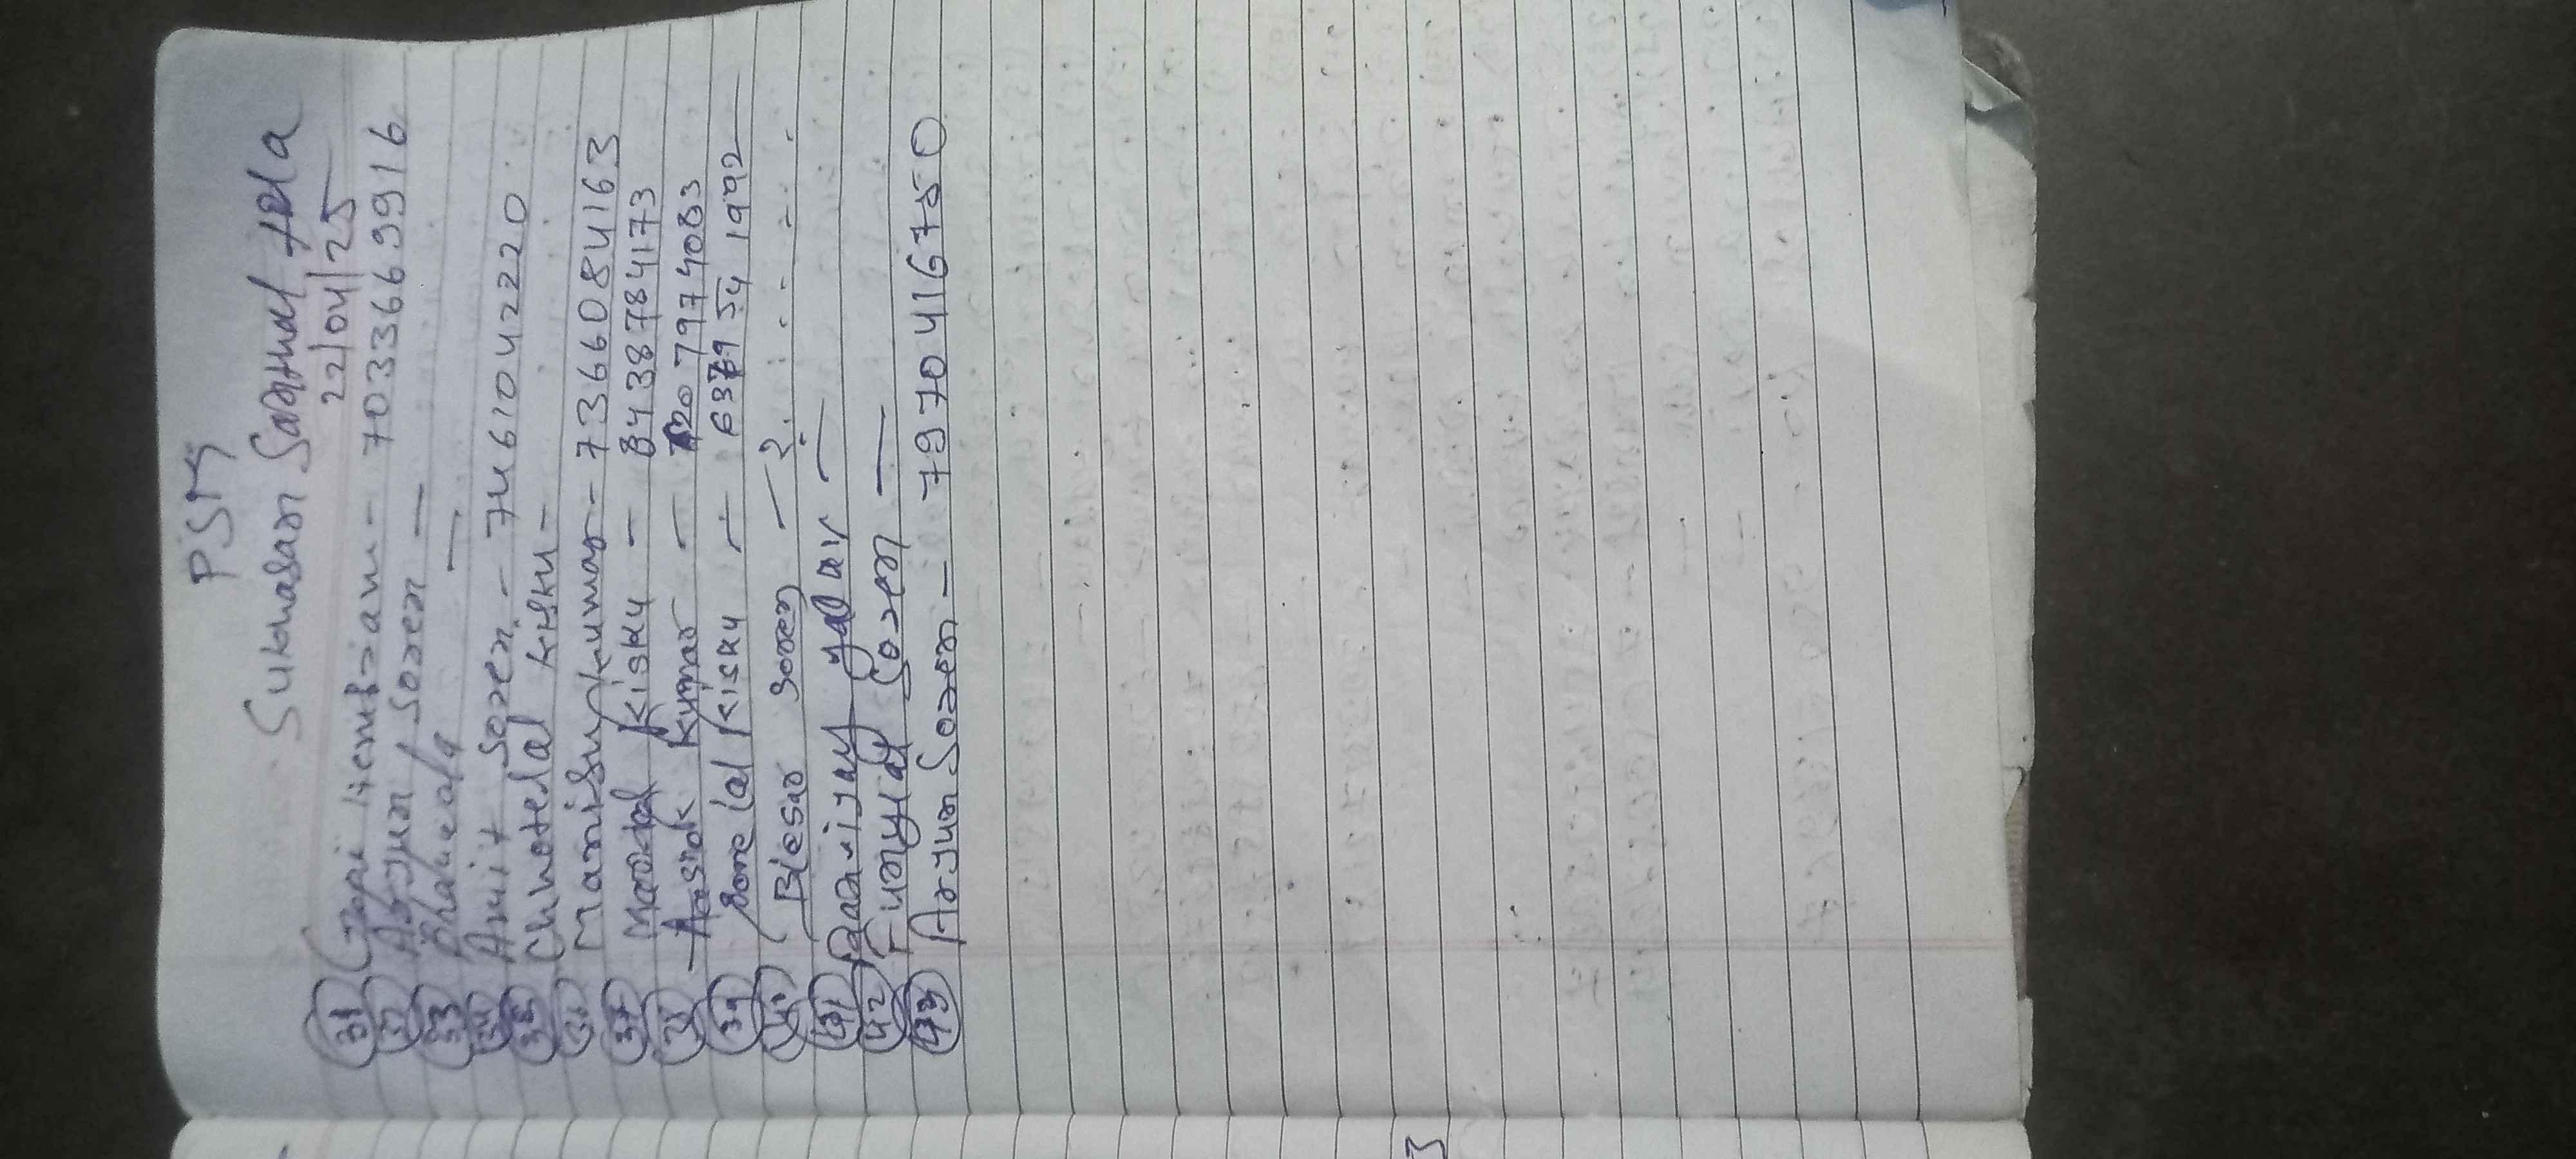 PSM
Sukhasan Santhal tola
22/04/25
31 Gopi Hembram - 7033669916
32 Arjun Soren -
33 -
34 Amit Soren - 7461042220
35 Chhotelal Kisku -
36 Manish Kumar - 7366084163
37 Kisky - 8438784173
38 Aashok Kumar - 207974083
39 Sone lal Kisky - 1992
40 Soren - ?
41 yadav -
42 Soren -
43 Arjun Soren - 7970416750